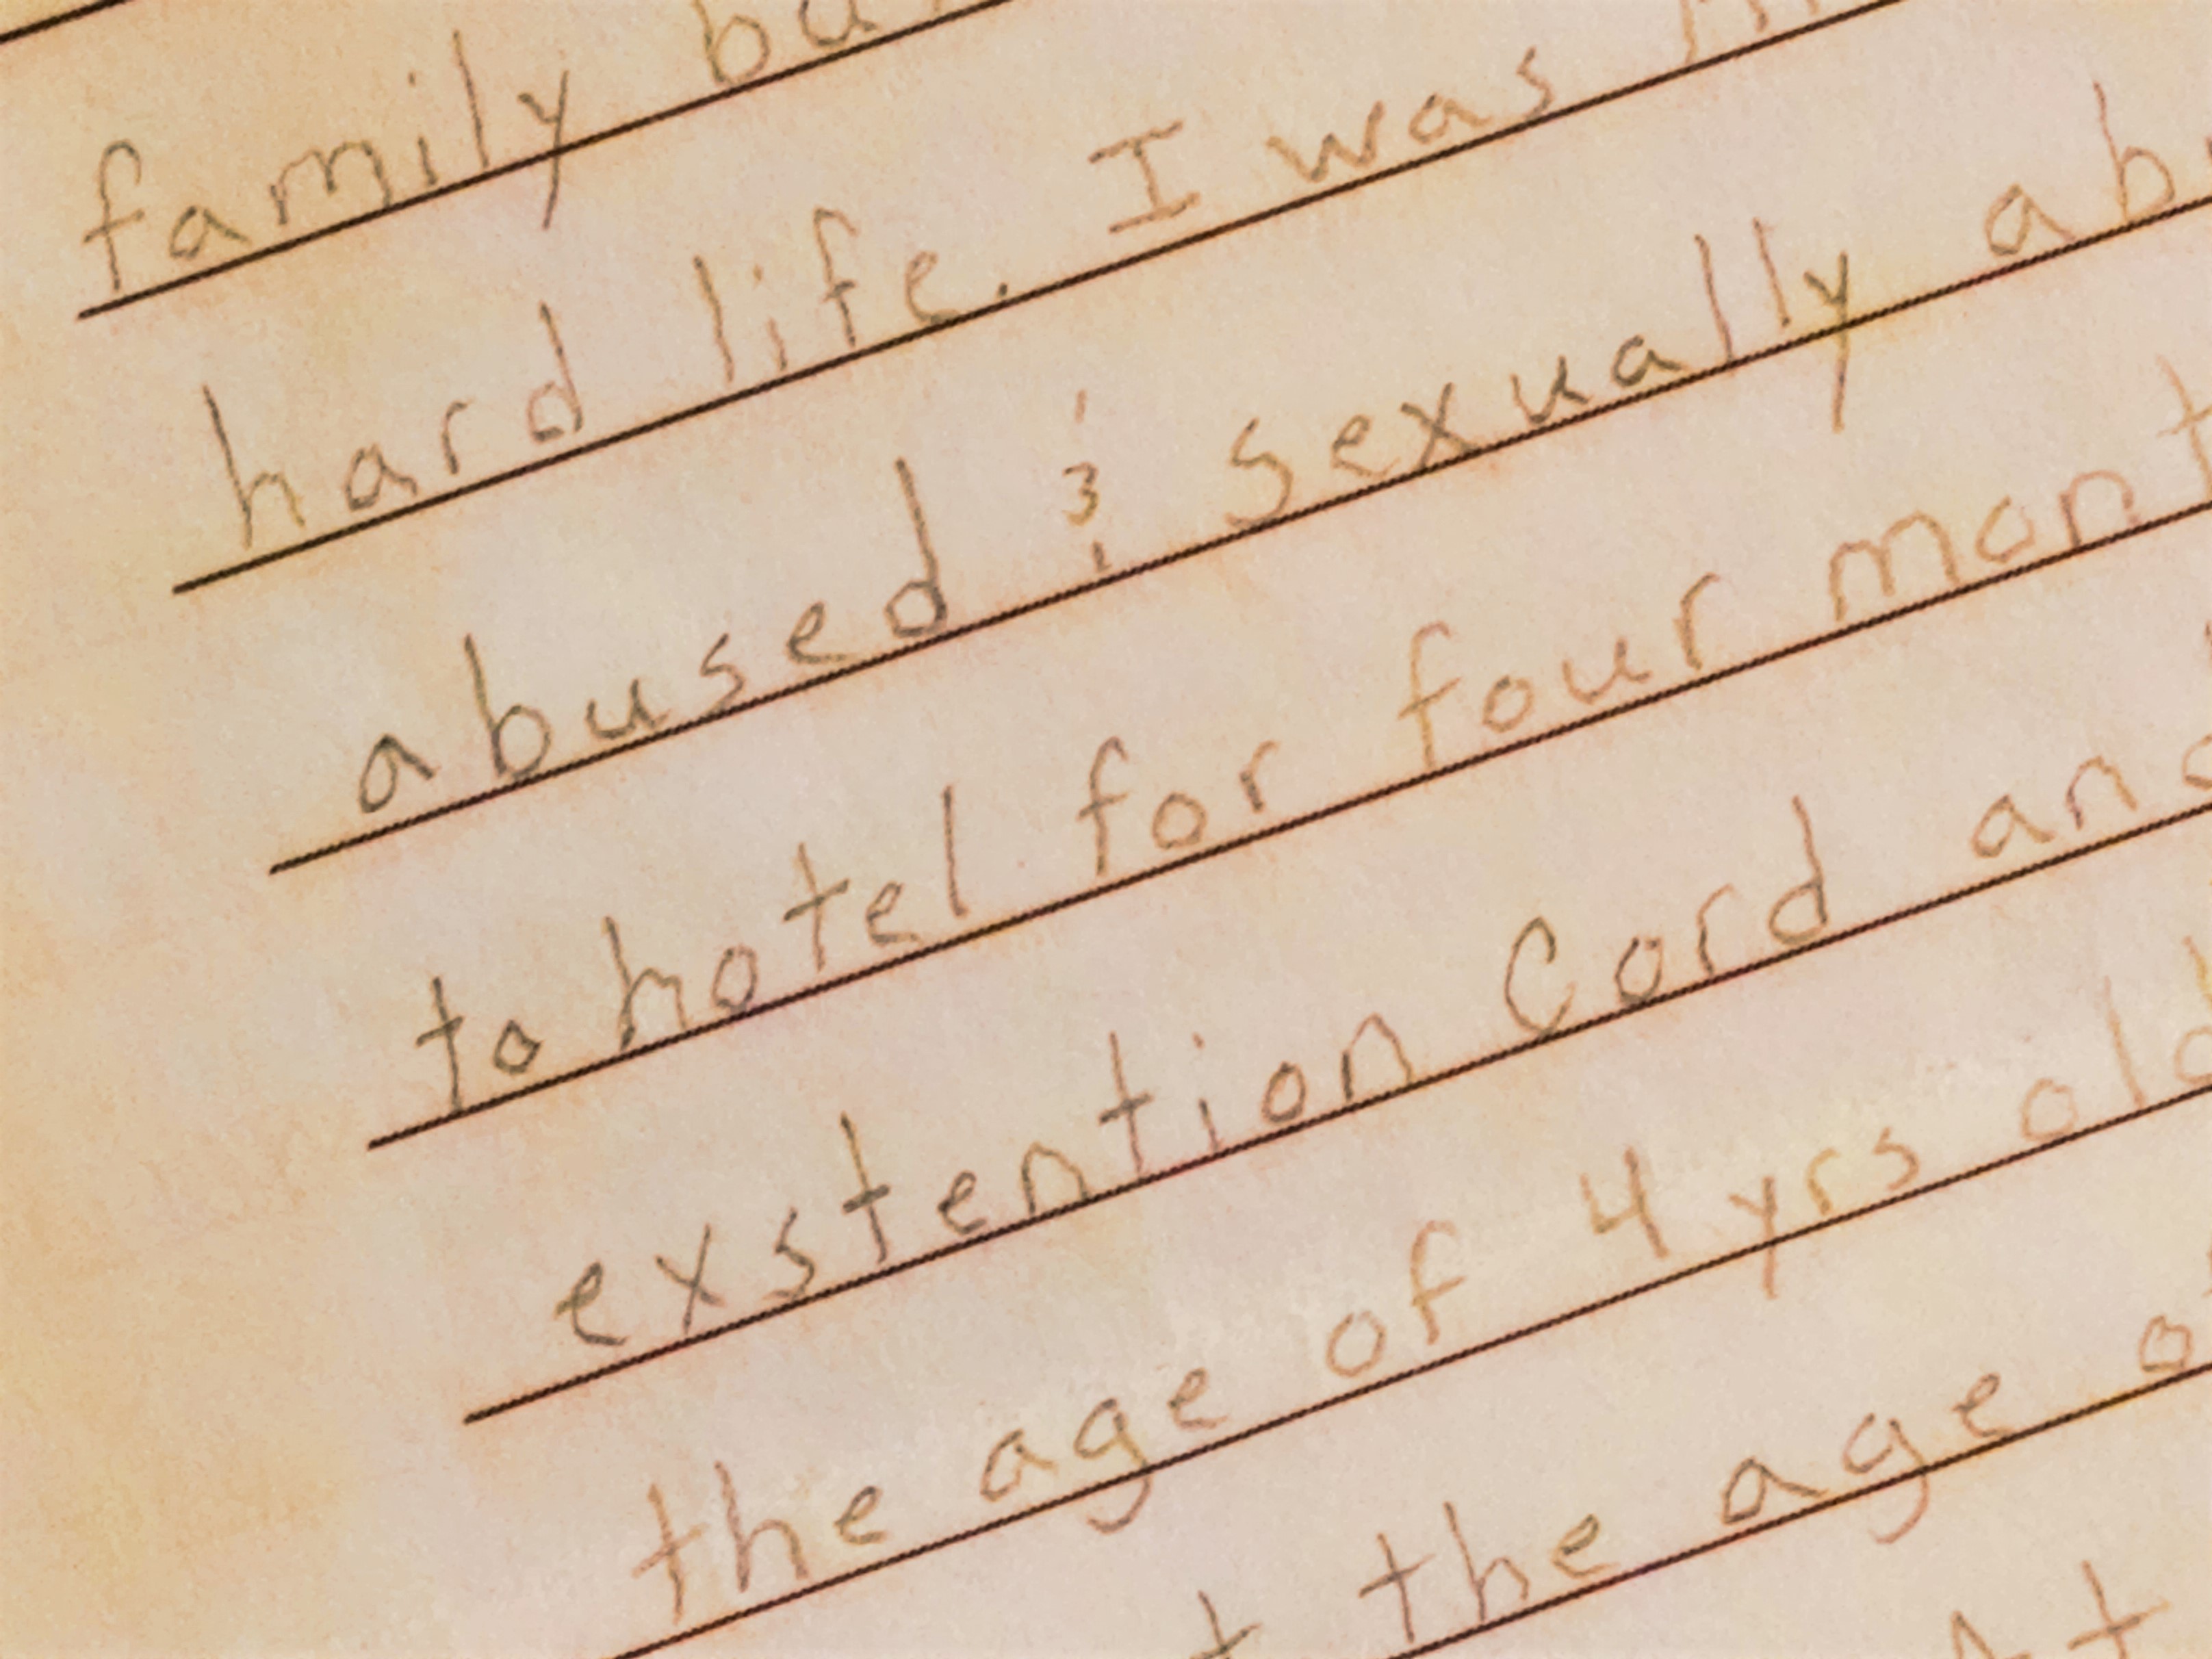 family
hard life. I was
abused & sexually
to hotel for four
extention Cord
the age of 4 yrs old
the age